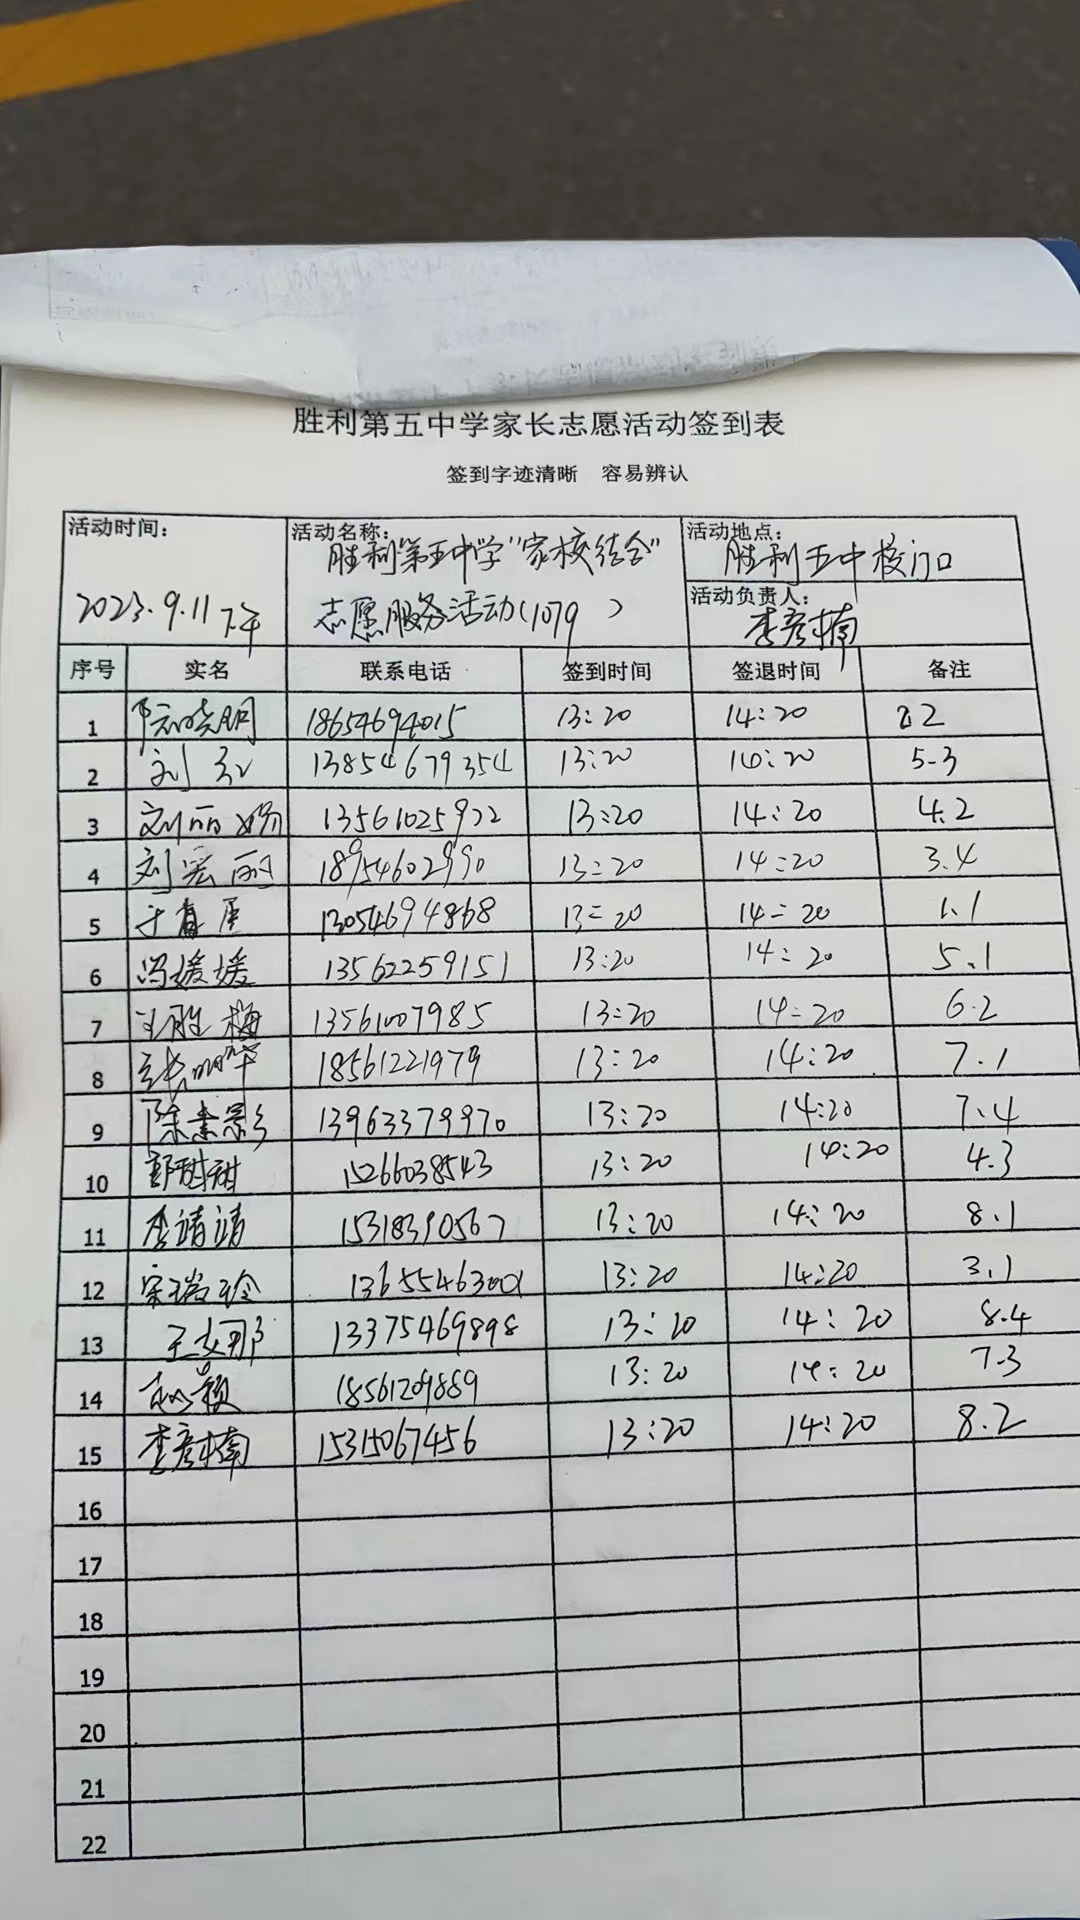 胜利第五中学家长志愿活动签到表
签到字迹清晰 容易辨认
活动时间: 活动名称: 活动地点:
胜利第五中学"家校结合" 胜利五中校门口
2023.9.11下午 志愿服务活动(1079) 活动负责人:
李彦楠
序号 实名 联系电话 签到时间 签退时间 备注
1 晓明 18654694015 13:20 14:20 2.2
2 刘红 13854679354 13:20 14:20 5.3
3 刘丽娟 13561025922 13:20 14:20 4.2
4 刘宏丽 18954602990 13:20 14:20 3.4
5 于春 13054694868 13:20 14:20 1.1
6 冯媛媛 13562259151 13:20 14:20 5.1
7 王胜梅 13561007985 13:20 14:20 6.2
8 张华 18561221979 13:20 14:20 7.1
9 陈素影 13963379970 13:20 14:20 7.4
10 郭甜甜 15266038543 13:20 14:20 4.3
11 李靖靖 15318390567 13:20 14:20 8.1
12 宋瑞玲 13:20 14:20 3.1
13 王文那 13375469898 13:20 14:20 8.4
14 赵颖 18561209889 13:20 14:20 7.3
15 李彦楠 15315067456 13:20 14:20 8.2
16
17
18
19
20
21
22